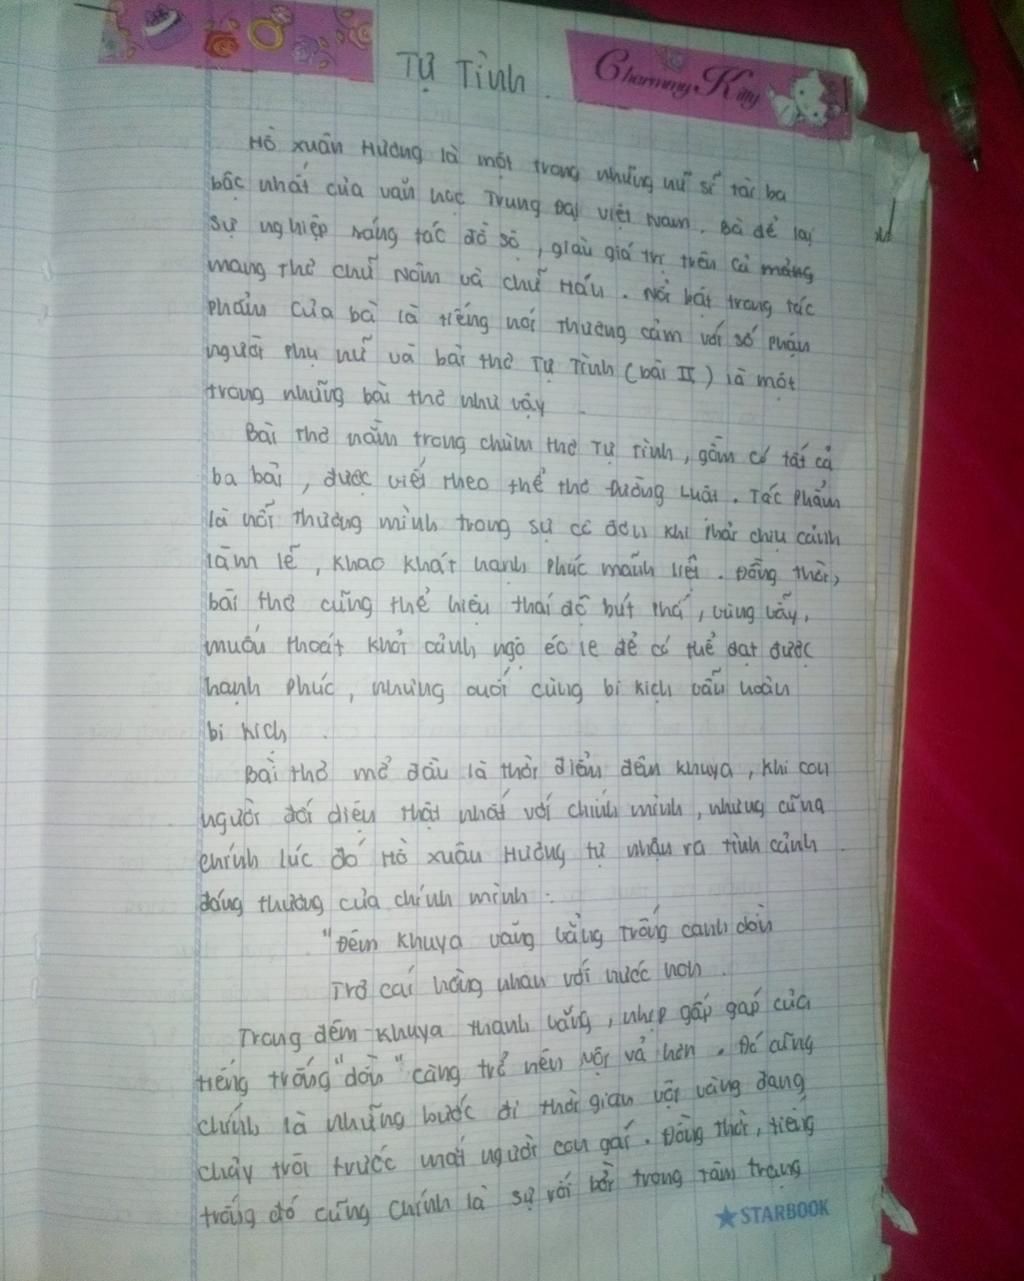 Tự Tình.
Charmmy Kitty
Hồ Xuân Hương là một trong những nữ sĩ tài ba
bậc nhất của văn học Trung Đại Việt Nam. Bà để lại
sự nghiệp sáng tác đồ sộ, giàu giá trị trên cả mảng
mang thơ chữ Nôm và chữ Hán. Nổi bật trong tác
phẩm của bà là tiếng nói thương cảm với số phận
người phụ nữ và bài thơ Tự Tình (bài II) là một
trong những bài thơ như vậy.
Bài thơ nằm trong chùm thơ Tự Tình, gồm có tất cả
ba bài, được viết theo thể thơ Đường Luật. Tác phẩm
là nỗi thương mình trong sự cô đơn khi phải chịu cảnh
làm lẽ, khao khát hạnh phúc mãnh liệt. Đồng thời,
bài thơ cũng thể hiện thái độ bứt phá, vùng vẫy,
muốn thoát khỏi cảnh ngộ éo le để có thể đạt được
hạnh phúc, nhưng cuối cùng bi kịch vẫn hoàn
bi kịch.
Bài thơ mở đầu là thời điểm đêm khuya, khi con
người đối diện thật nhất với chính mình, nhưng cũng
chính lúc đó Hồ Xuân Hương tự nhận ra tình cảnh
đáng thương của chính mình:
"Đêm khuya văng vẳng trống canh dồn
Trơ cái hồng nhan với nước non.
Trong đêm khuya thanh vắng, nhịp gấp gáp của
tiếng trống "dồn" càng trở nên vội vả hơn. Đó cũng
chính là những bước đi thời gian vội vàng đang
chảy trôi trước mắt người con gái. Đồng thời, tiếng
trống đó cũng chính là sự rối bời trong tâm trạng
STARBOOK